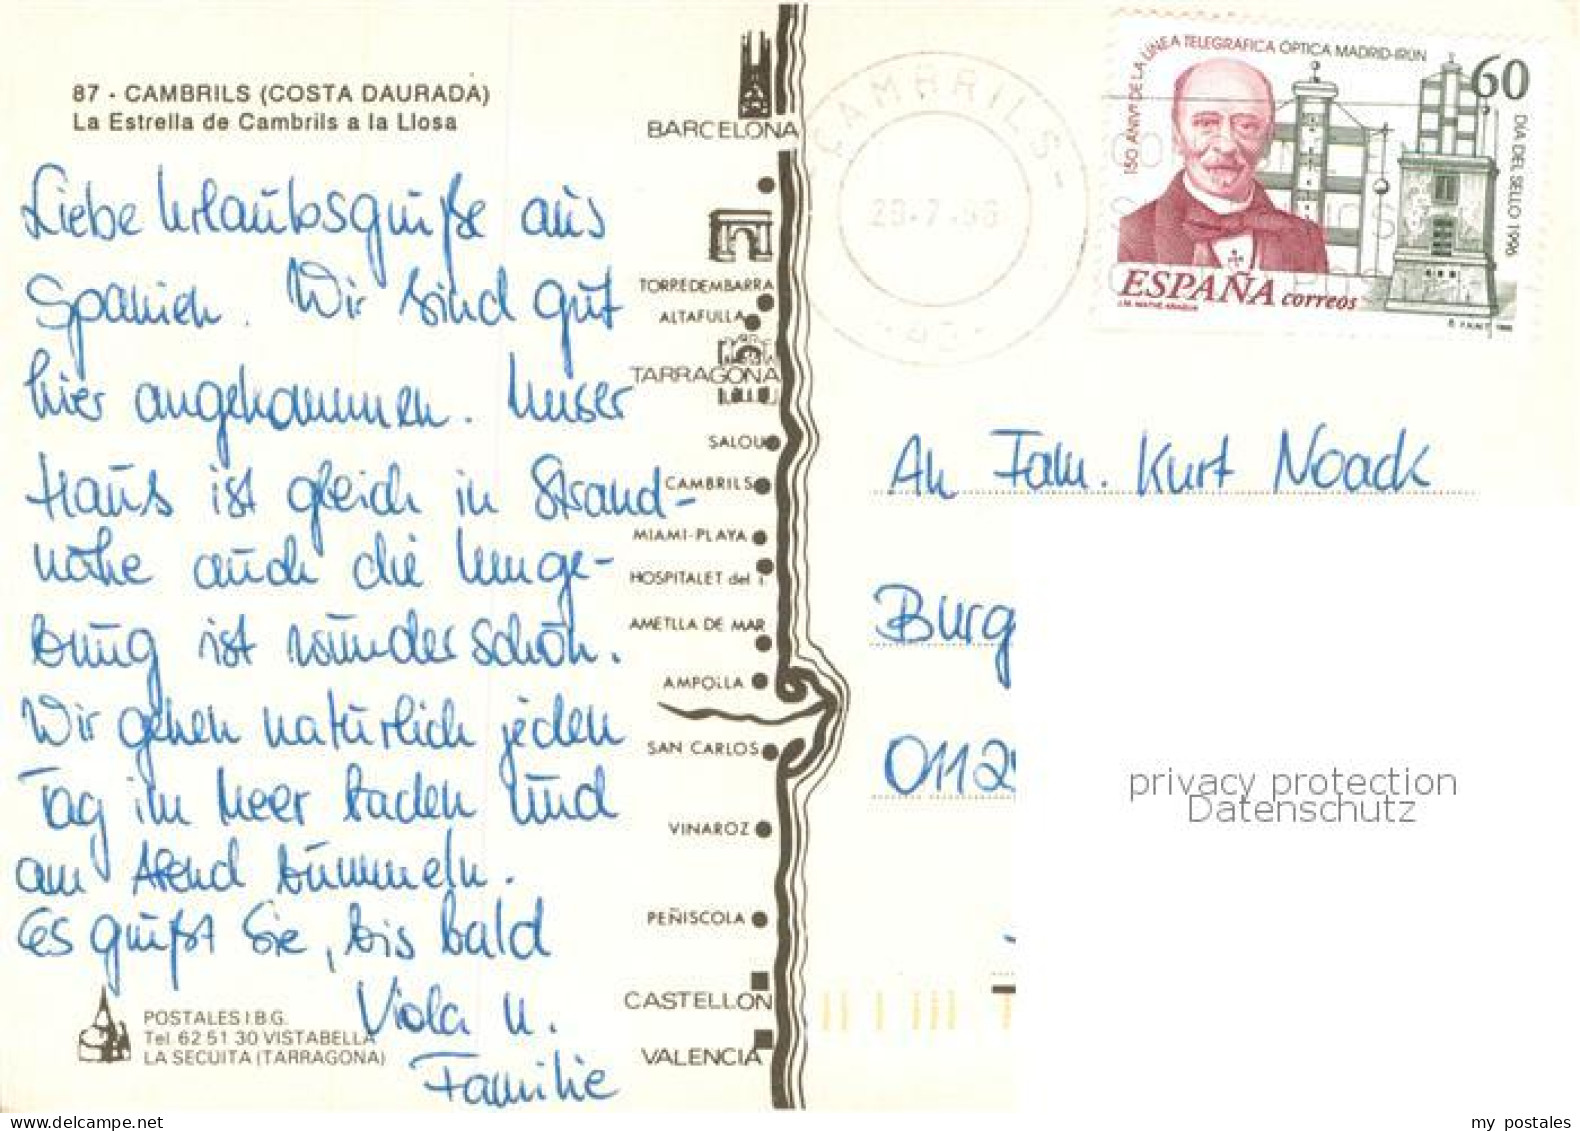 87 - CAMBRILS (COSTA DAURADA)
La Estrella de Cambrils a la Llosa
Liebe Urlaubsgrüße aus
Spanien. Wir sind gut
hier angekommen. Unser
Haus ist gleich in Strand-
nähe auch die Umge-
bung ist wunderschön.
Wir gehen natürlich jeden
Tag im Meer baden und
am Abend bummeln.
Es grüßt Sie, bis bald
Viola u.
Familie
POSTALES I.B.G.
Tel. 62 51 30 VISTABELLA
LA SECUITA (TARRAGONA)
BARCELONA
TORREDEMBARRA
ALTAFULLA
TARRAGONA
SALOU
CAMBRILS
MIAMI-PLAYA
HOSPITALET del I.
AMETLLA DE MAR
AMPOLLA
SAN CARLOS
VINAROZ
PEÑISCOLA
CASTELLON
VALENCIA
CAMBRILS
150 ANVº DE LA LINEA TELEGRÁFICA ÓPTICA MADRID-IRÚN
60
DIA DEL SELLO 1996
ESPAÑA correos
An Fam. Kurt Noack
Burg
0112
privacy protection
Datenschutz
my postales